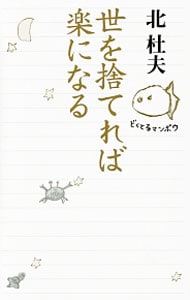 北 杜夫
世を捨てれば
楽になる
どくとるマンボウ